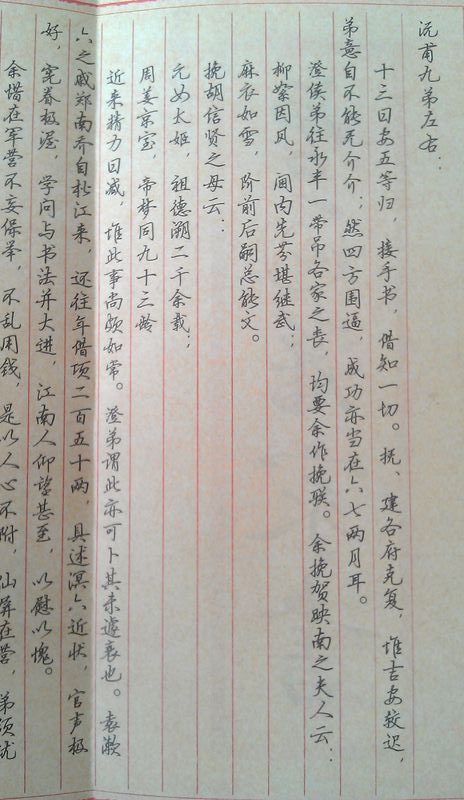 沅甫九弟左右：
十三日安五等归，接手书，借知一切。抚、建各府克复，惟吉安较迟，
弟意自不能无介介；然四方围逼，成功亦当在六七两月耳。
澄侯弟往永丰一带吊各家之丧，均要余作挽联。余挽贺映南之夫人云：
柳絮因风，阃内先芬堪继武；
麻衣如雪，阶前后嗣总能文。
挽胡信贤之母云：
元女太姬，祖德溯二千余载；
周姜京室，帝梦同九十三龄
近来精力日减，惟此事尚颇如常。澄弟谓此亦可卜其未遽衰也。袁漱
六之戚郑南乔自松江来，还往年借项二百五十两，具述漱六近状，官声极
好，宪眷极渥，学问与书法并大进，江南人仰望甚至，以慰以愧。
余昔在军营不妄保举，不乱用钱，是以人心不附，仙屏在营，弟须优